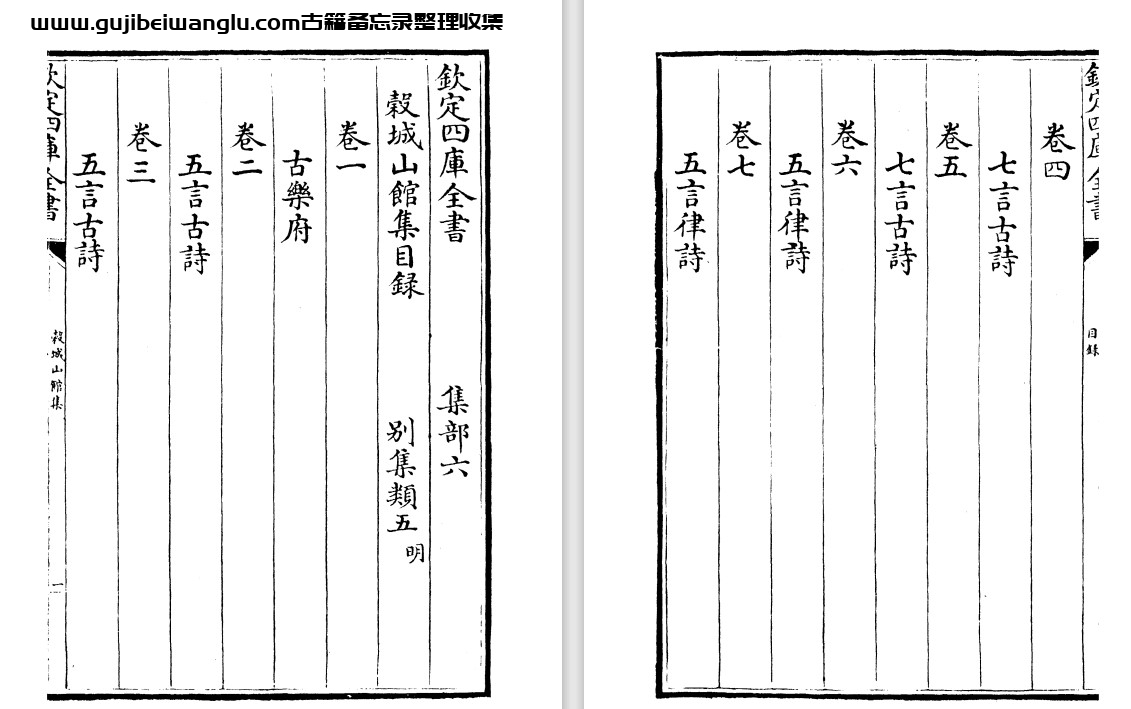 www.gujibeiwanglu.com古籍备忘录整理收集
欽定四庫全書 集部六
榖城山館集目録 别集類五 明
卷一
古樂府
卷二
五言古詩
卷三
五言古詩
欽定四庫全書 榖城山館集 一
欽定四庫全書 目録
卷四
七言古詩
卷五
七言古詩
卷六
五言律詩
卷七
五言律詩